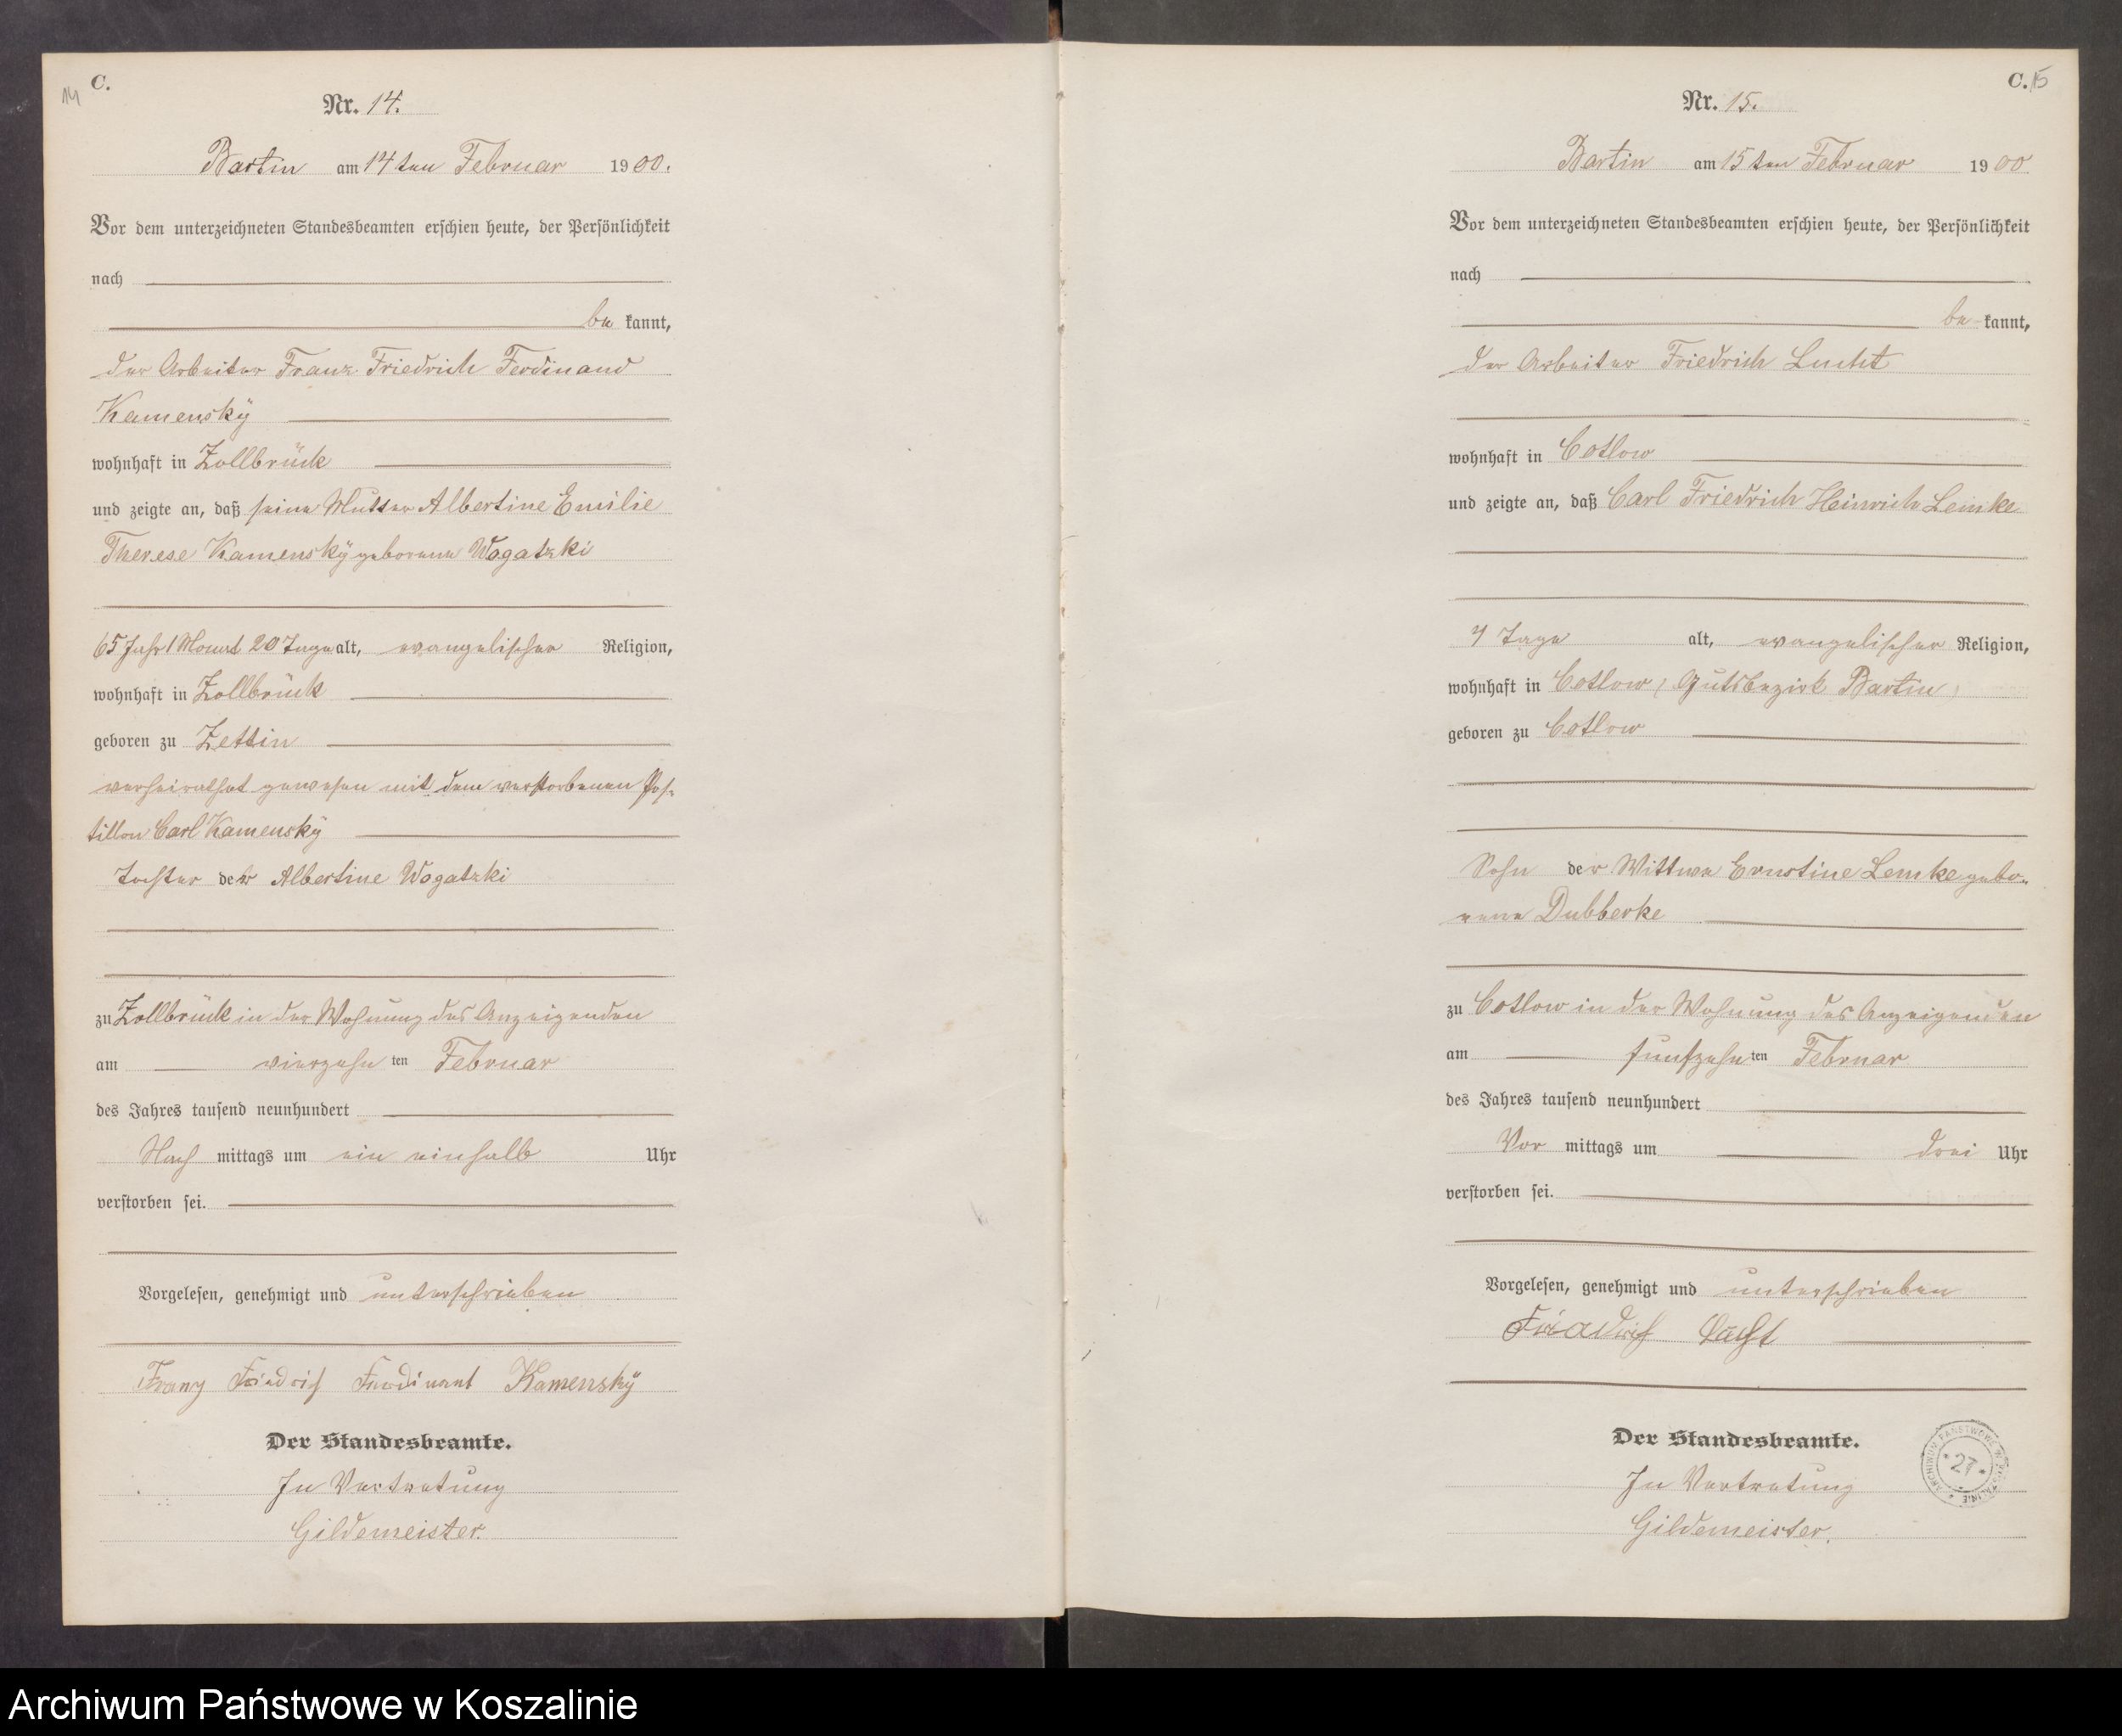 14
C.
Nr. 14.
Bartin am 14 ten Februar 1900.
Vor dem unterzeichneten Standesbeamten erschien heute, der Persönlichkeit
nach
be kannt,
der Arbeiter Franz Friedrich Ferdinand
Kamensky
wohnhaft in Zollbrück
und zeigte an, daß seine Mutter Albertine Emilie
Therese Kamensky geborene Wogatzki
65 Jahr 1 Monat 20 Tage alt, evangelischer Religion,
wohnhaft in Zollbrück
geboren zu Zettin
verheirathet gewesen mit dem verstorbenen Pos-
tillon Carl Kamensky
Tochter der Albertine Wogatzki
zu Zollbrück in der Wohnung des Anzeigenden
am vierzehn ten Februar
des Jahres tausend neunhundert
Nach mittags um ein einhalb Uhr
verstorben sei.
Vorgelesen, genehmigt und unterschrieben
Franz Friedrich Ferdinant Kamensky
Der Standesbeamte.
In Vertretung
Gildemeister.
C. 15
Nr. 15.
Bartin am 15 ten Februar 1900
Vor dem unterzeichneten Standesbeamten erschien heute, der Persönlichkeit
nach
be kannt,
der Arbeiter Friedrich Lucht
wohnhaft in Cotlow
und zeigte an, daß Carl Friedrich Heinrich Lemke
7 Tage alt, evangelischer Religion,
wohnhaft in Cotlow (Gutsbezirk Bartin)
geboren zu Cotlow
Sohn der Wittwe Ernstine Lemke gebo-
rene Dubberke
zu Cotlow in der Wohnung des Anzeigenden
am fünfzehn ten Februar
des Jahres tausend neunhundert
Vor mittags um drei Uhr
verstorben sei.
Vorgelesen, genehmigt und unterschrieben
Friedrich Lucht
Der Standesbeamte.
In Vertretung
Gildemeister.
ARCHIWUM PAŃSTWOWE W KOSZALINIE
* 27 *
Archiwum Państwowe w Koszalinie